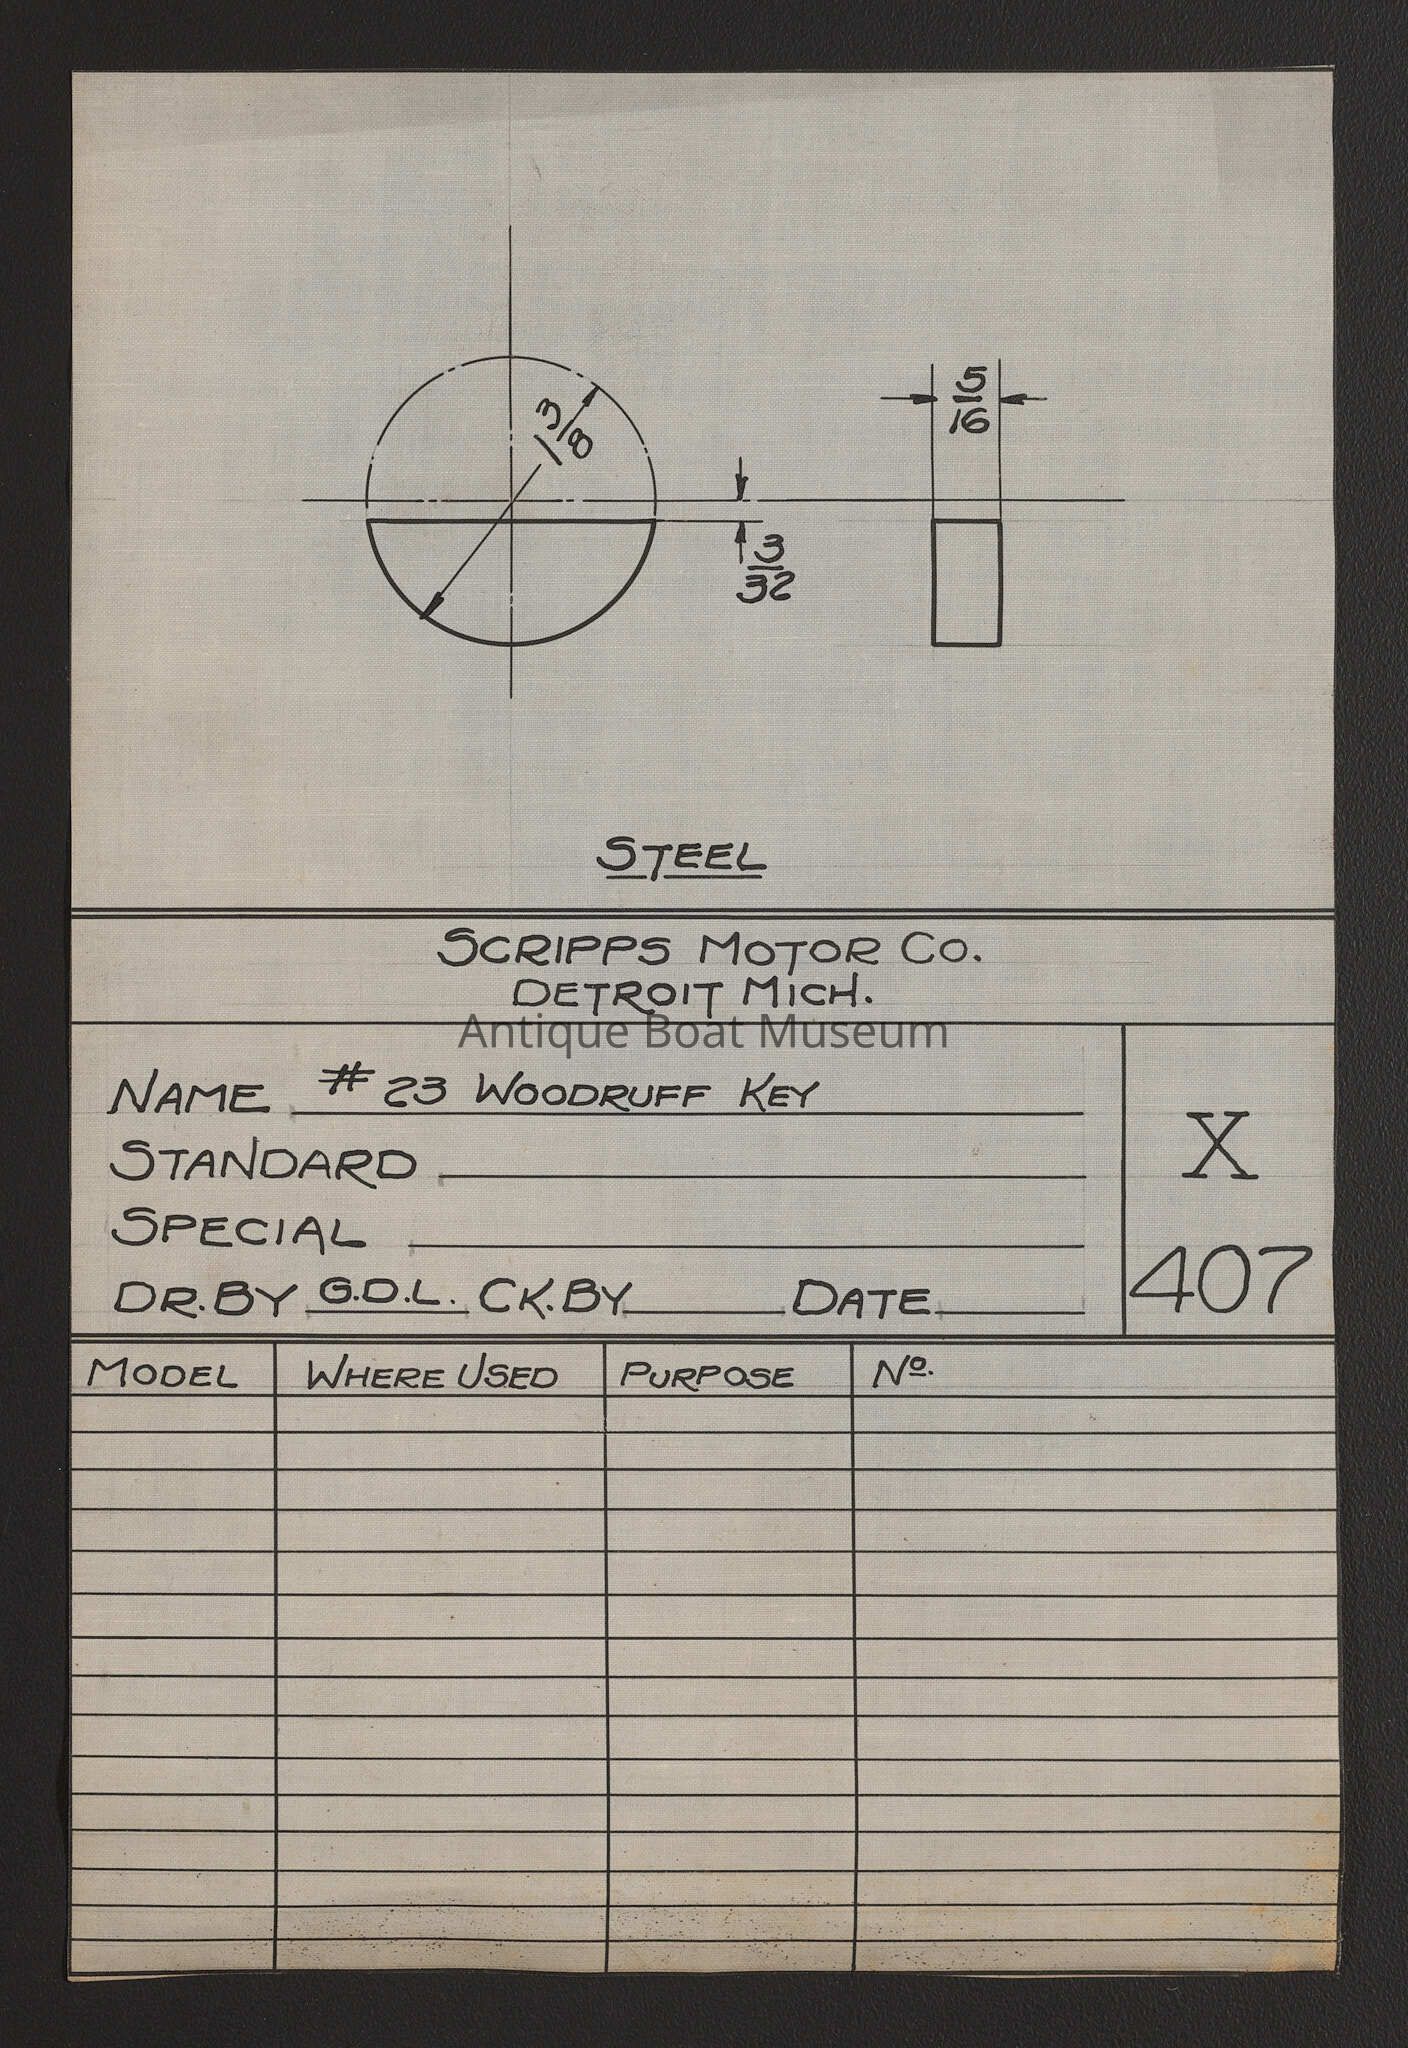 1 3/8
5/16
3/32
STEEL
SCRIPPS MOTOR CO.
DETROIT MICH.
Antique Boat Museum
NAME # 23 WOODRUFF KEY
STANDARD
SPECIAL
DR. BY G.D.L. CK. BY DATE
X
407
MODEL WHERE USED PURPOSE Nº.